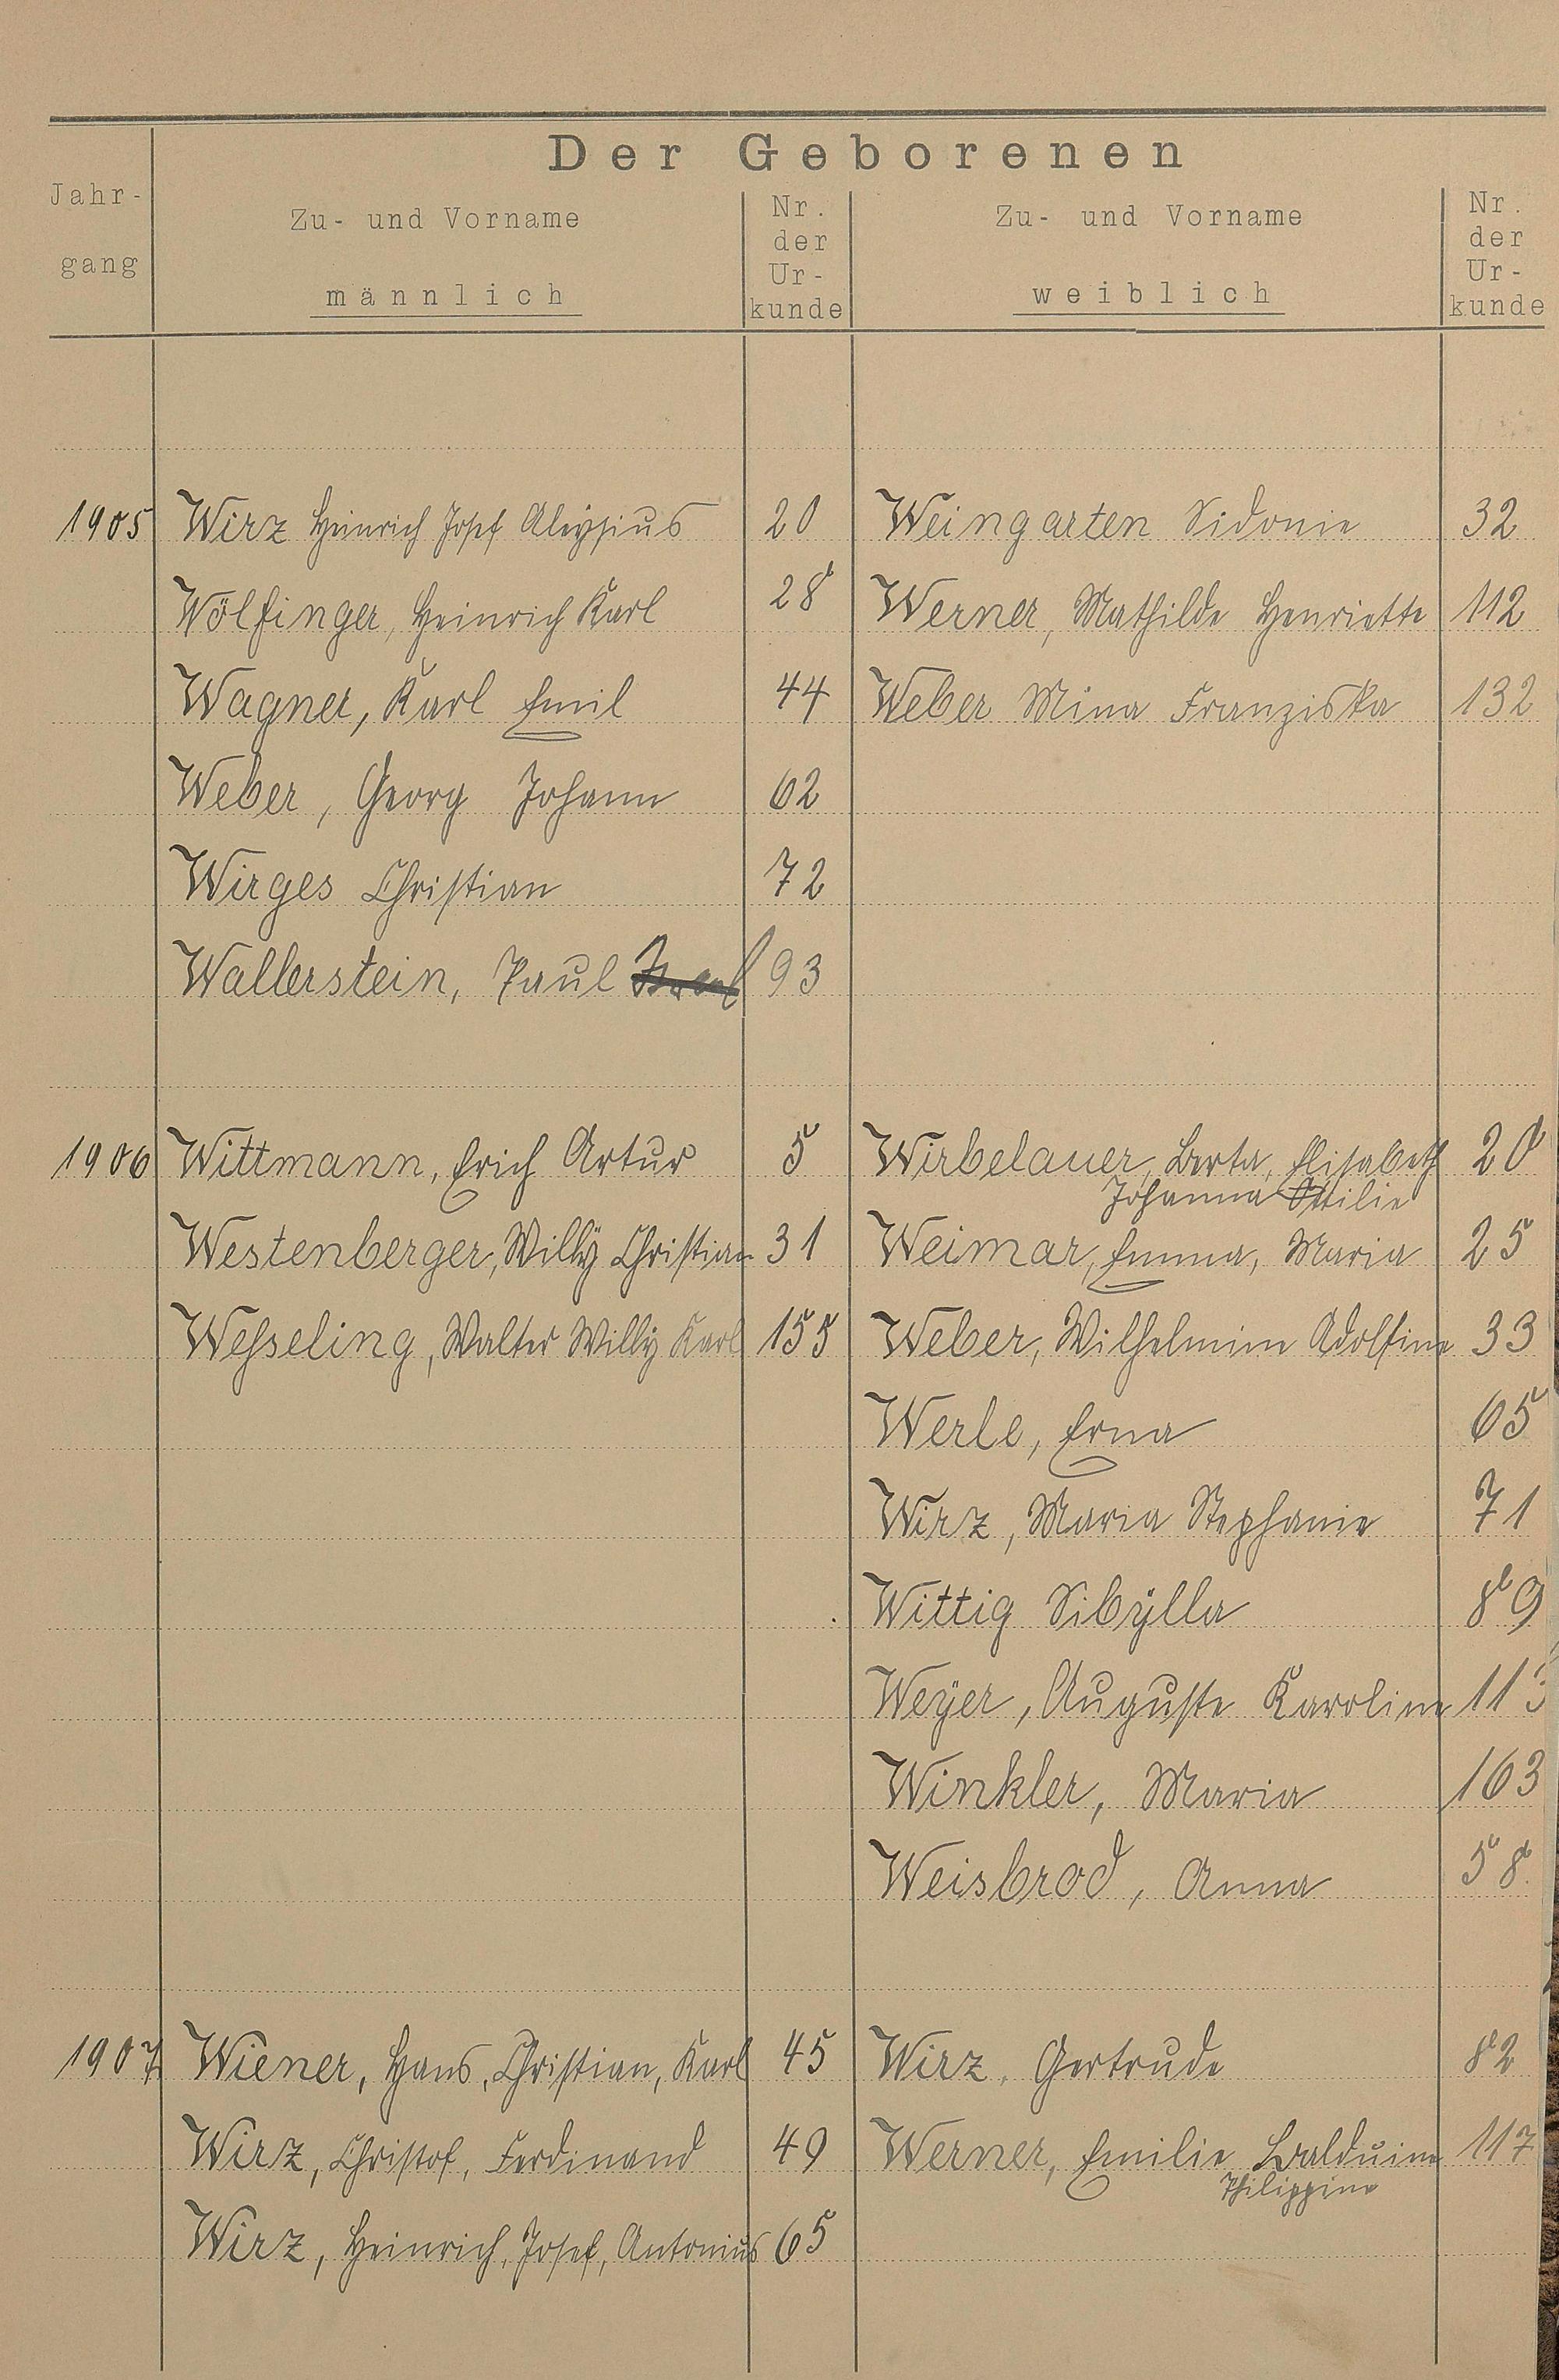 Der Geborenen
Jahr-
gang
Zu- und Vorname
männlich
Nr.
der
Ur-
kunde
Zu- und Vorname
weiblich
Nr.
der
Ur-
kunde
1905 Wirz Heinrich Josef Aloysius 20 Weingarten Sidonie 32
Wölfinger, Heinrich Karl 28 Werner, Mathilde Henriette 112
Wagner, Karl Emil 44 Weber Mina Franziska 132
Weber, Georg Johann 62
Wirges Christian 72
Wallerstein, Paul Israel 93
1906 Wittmann, Erich Artur 5 Wirbelauer, Berta, Elisabeth 20
Johanna Ottilie
Westenberger, Willÿ Christian 31 Weimar, Emma, Maria 25
Weſseling, Walter Willÿ Karl 155 Weber, Wilhelmine Adolfine 33
Werle, Erna 65
Wirz, Maria Stephanie 71
Wittig Sibÿlla 89
Weÿer, Auguste Karoline 113
Winkler, Maria 163
Weisbrod, Anna 58
1907 Wiener, Hans, Christian, Karl 45 Wirz, Gertrude 82
Wirz, Christof, Ferdinand 49 Werner, Emilie Balduine 117
Philippine
Wirz, Heinrich, Josef, Antonius 65